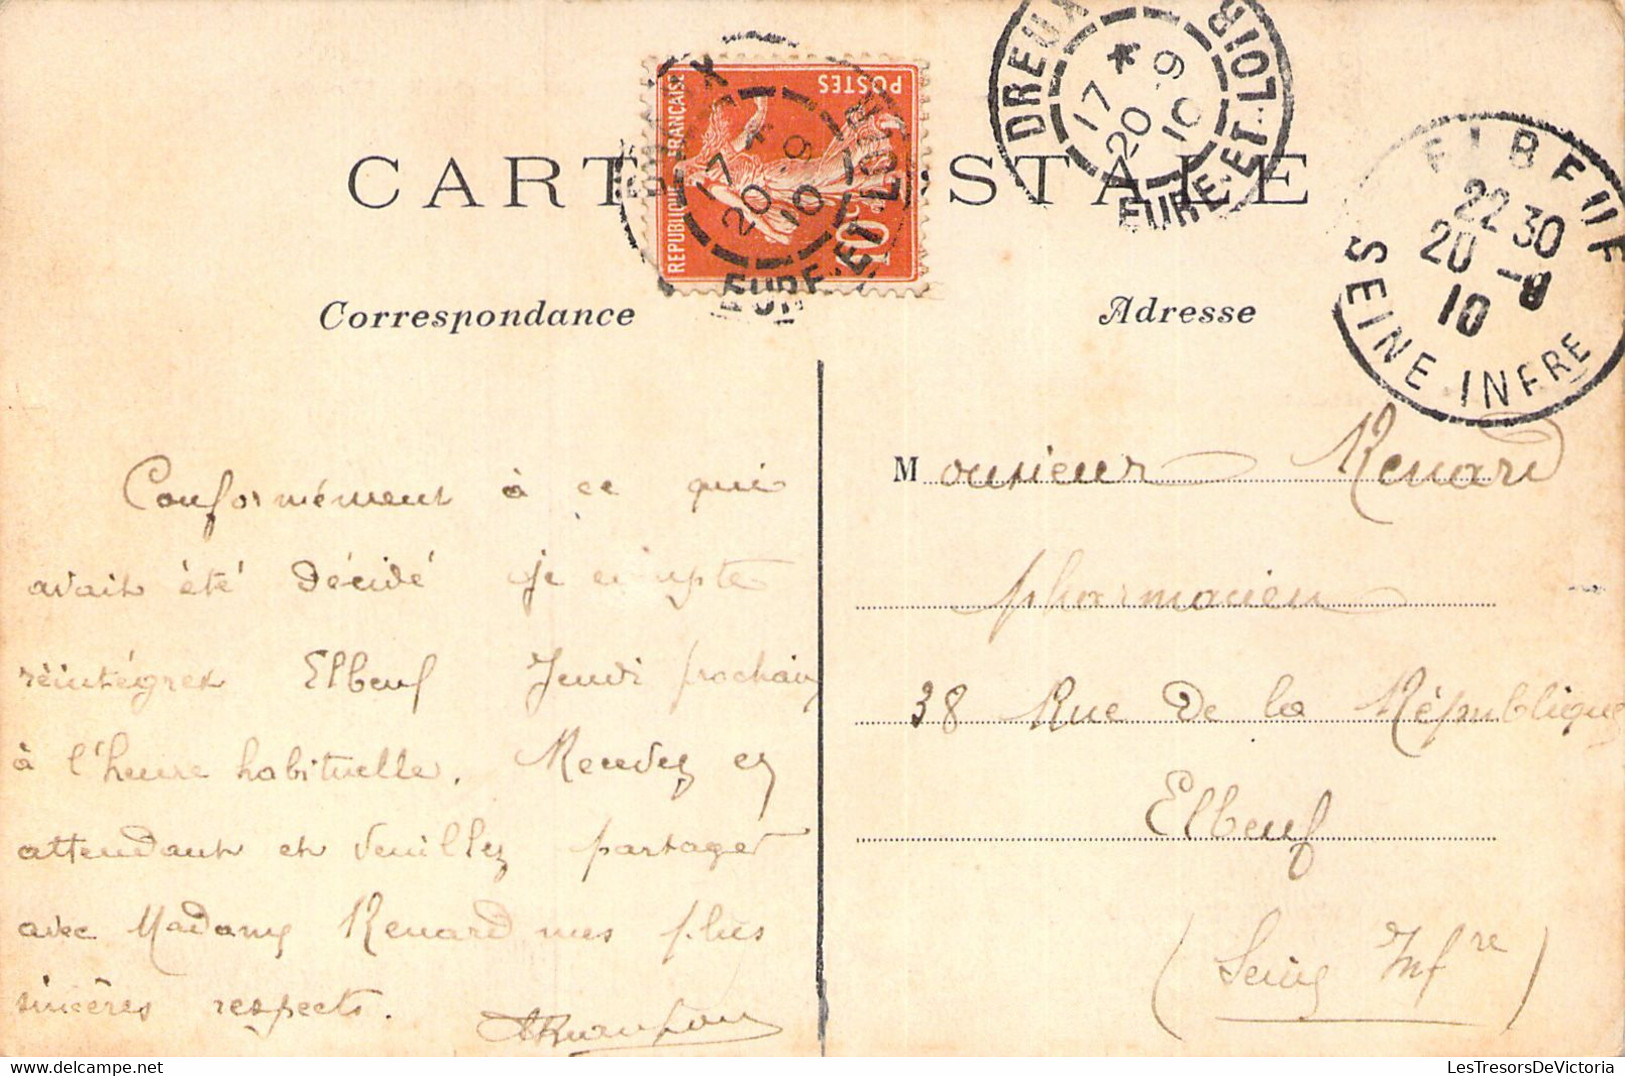 CARTE POSTALE
REPUBLIQUE FRANÇAISE
POSTES
10
DREUX
17 * 20 -9 10
EURE-ET-LOIR
DREUX
17 * 20 -9 10
EURE-ET-LOIR
ELBEUF
22 30
20 -9
10
SEINE INFRE
Correspondance
Adresse
Conformément à ce qui
avait été décidé je compte
réintégrer Elbeuf Jeudi prochain
à l'heure habituelle.
attendant et veuillez partager
avec Madame Renard mes plus
sincères respects.
Monsieur Renard
pharmacien
38 Rue de la République
Elbeuf
(Seine Infre)
www.LesTresorsDeVictoria.com